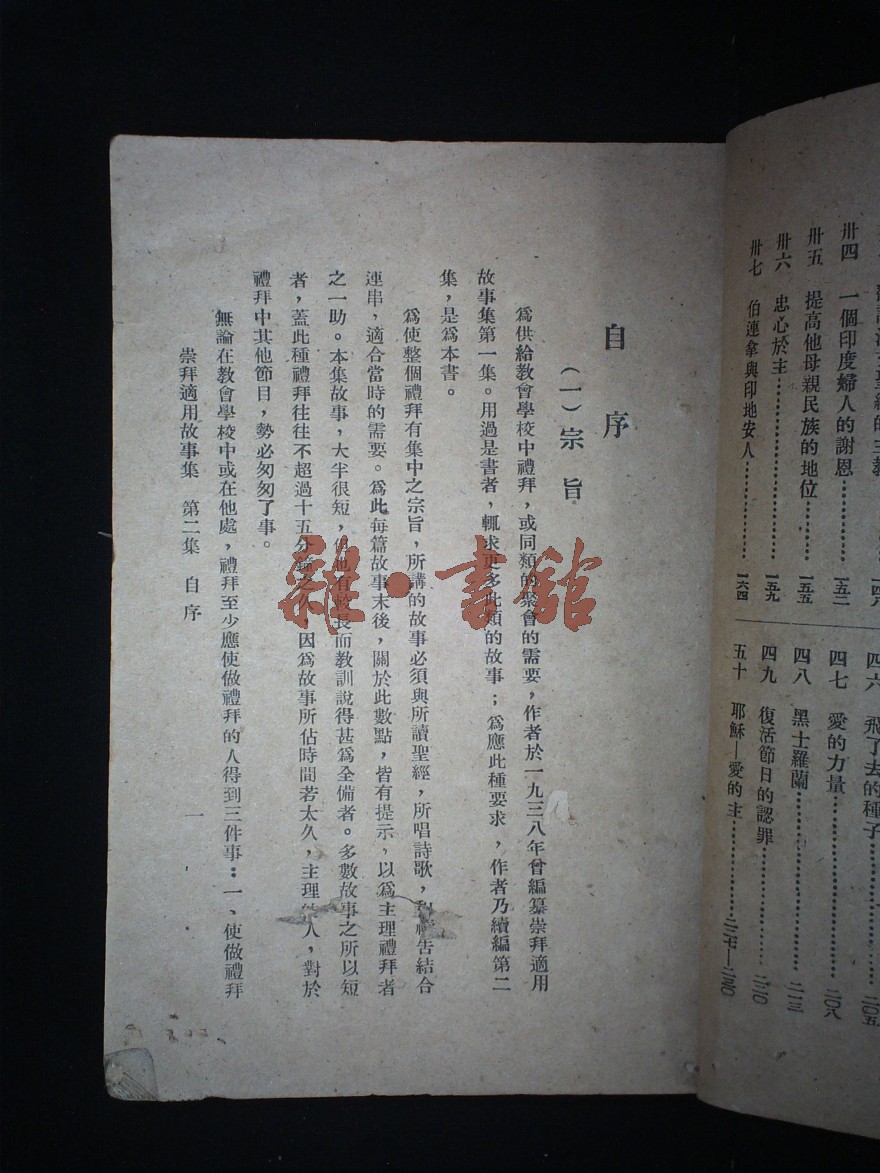 卅四 一個印度婦人的謝恩…………一五二
卅五 提高他母親民族的地位…………一五五
卅六 忠心於主…………一五九
卅七 伯連拿與印地安人…………一六四
四六 飛了去的種子…………二〇五
四七 愛的力量…………二〇八
四八 黑士羅蘭…………二一三
四九 復活節日的認罪…………二二〇
五十 耶穌—愛的主…………
自序
(一)宗旨
爲供給教會學校中禮拜,或同類的聚會的需要,作者於一九三八年曾編纂崇拜適用
故事集第一集。用過是書者,輒求更多此類的故事;爲應此種要求,作者乃續編第二
集,是爲本書。
爲使整個禮拜有集中之宗旨,所講的故事必須與所讀聖經,所唱詩歌,禱告結合
連串,適合當時的需要。爲此每篇故事末後,關於此數點,皆有提示,以爲主理禮拜者
之一助。本集故事,大半很短,但也有較長而教訓說得甚爲全備者。多數故事之所以短
者,蓋此種禮拜往往不超過十五分鐘之久,因爲故事所佔時間若太久,主理人,對於
禮拜中其他節目,勢必匆匆了事。
無論在教會學校中或在他處,禮拜至少應使做禮拜的人得到三件事:一、使做禮拜
崇拜適用故事集 第二集 自序
一
雜·書館